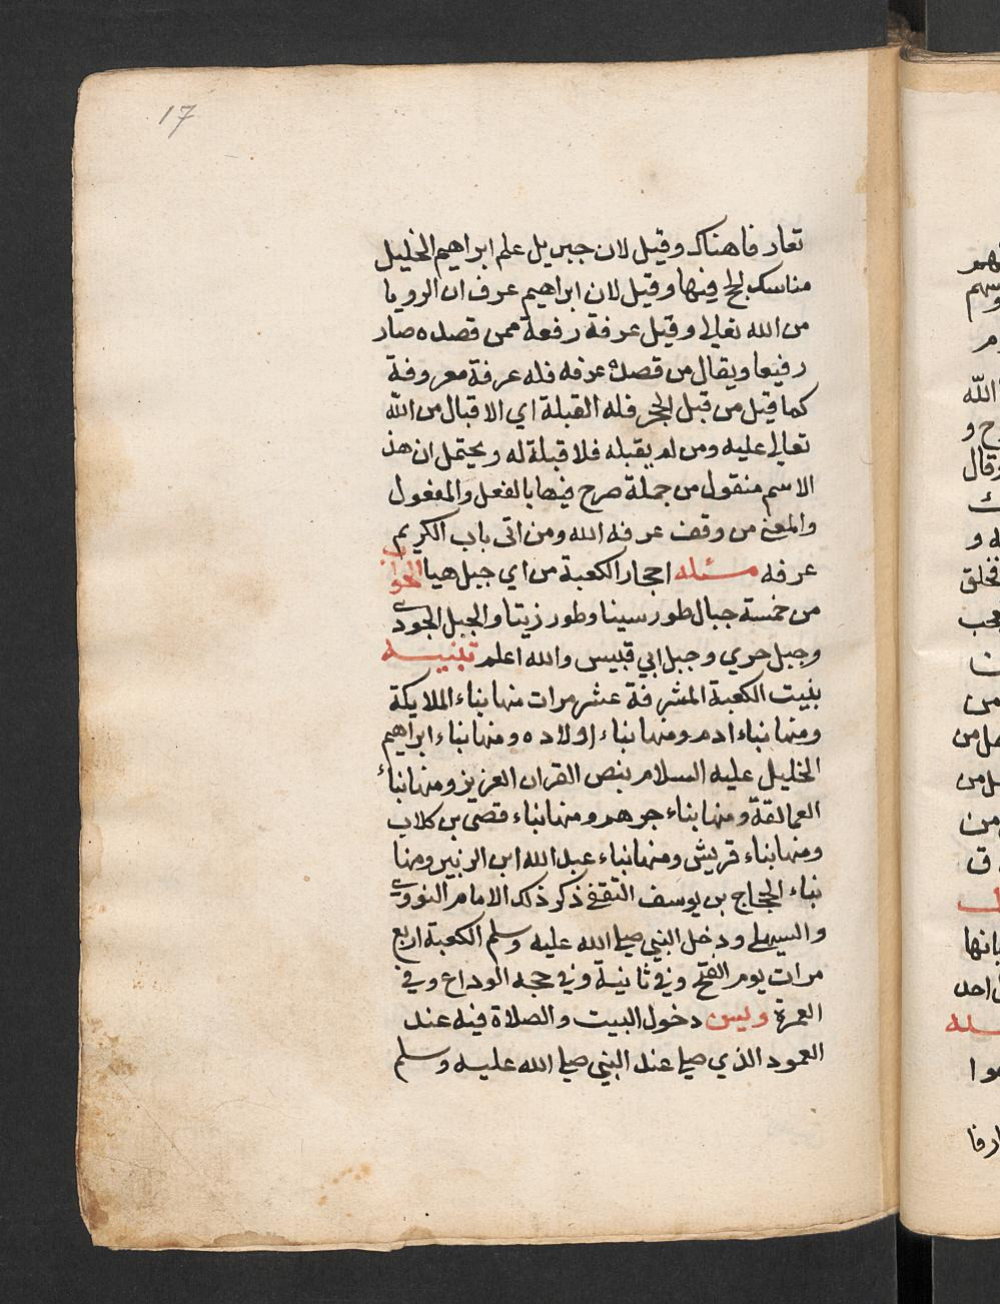 17
تعارفا هناك وقيل لان جبريل علم ابراهيم الخليل
مناسك الحج فيها وقيل لان ابراهيم عرف ان الرويا
من الله تعالى وقيل عرفة رفعة ممن قصده صار
رفيعا ويقال من قصده عرفه فله عرفة معروفة
كما قيل من قبل الحجر فله القبلة اي الاقبال من الله
تعالى عليه ومن لم يقبله فلا قبلة له ويحتمل ان هذ
الاسم منقول من جملة صرح فيها بالفعل والمفعول
والمعنى من وقف عرفه الله ومن اتى باب الكريم
عرفه مسئله احجار الكعبة من اي جبل هيا الجواب
من خمسة جبال طور سينا وطور زيتا والجبل الجودي
وجبل حرى وجبل ابي قبيس والله اعلم تنبيه
بنيت الكعبة المشرفة عشر مرات منها بناء الملايكة
ومنها بناء ادم ومنها بناء اولاده ومنها بناء ابراهيم
الخليل عليه السلام بنص القران العزيز ومنها بناء
العمالقة ومنها بناء جرهم ومنها بناء قصى بن كلاب
ومنها بناء قريش ومنها بناء عبد الله ابن الزبير ومنها
بناء الحجاج بن يوسف الثقفى ذكر ذلك الامام النووي
والسهيلى ودخل النبي صلى الله عليه وسلم الكعبة اربع
مرات يوم الفتح وفي ثانية وفي حجه الوداع وفي
العمرة ويسن دخول البيت والصلاة فيه عند
العمود الذي صلى عند النبي صلى الله عليه وسلم